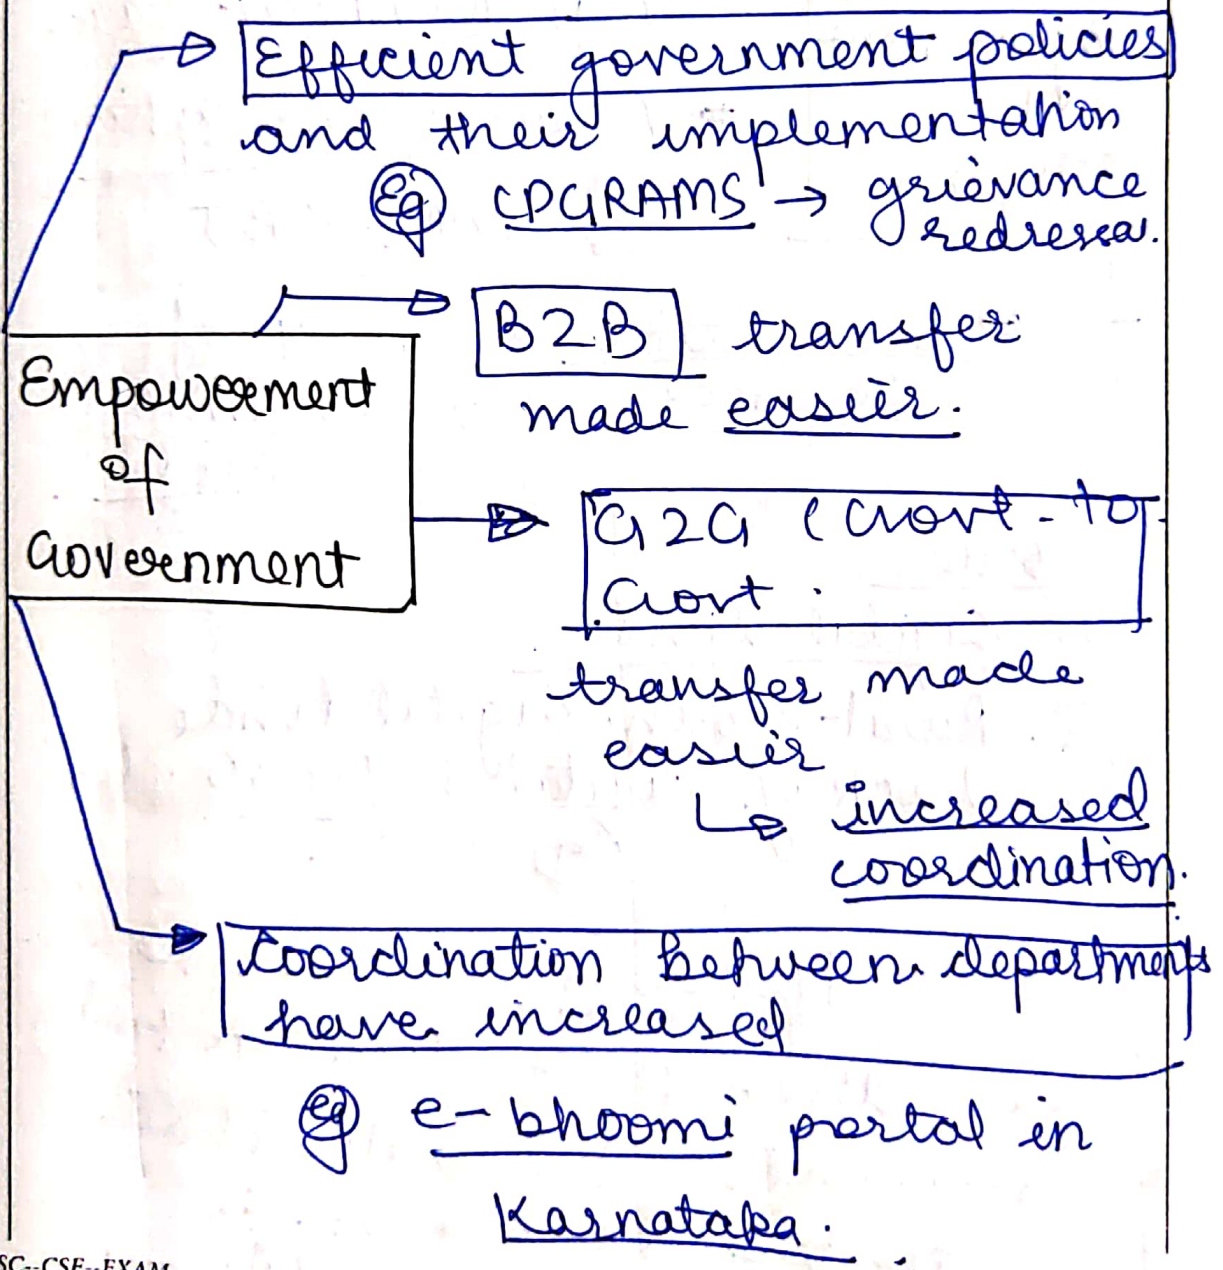 Efficient government policies
and their implementation
Eg CPGRAMS → grievance
redressa.
B2B transfer
made easier.
Empowerment
of
Government
G2G (Govt - to
Govt.
transfer made
easier
increased
coordination.
Coordination between departments
have increased
Eg e-bhoomi portal in
Karnataka.
SC--CSE--EXAM